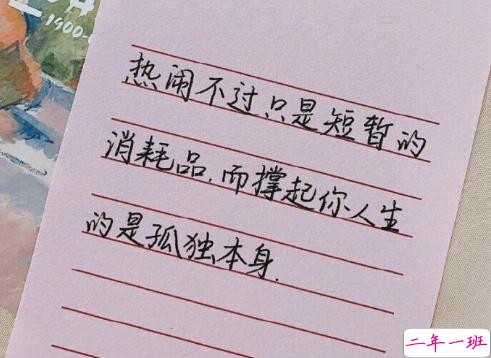 1900-
热闹不过只是短暂的
消耗品.而撑起你人生
的是孤独本身.
二年一班